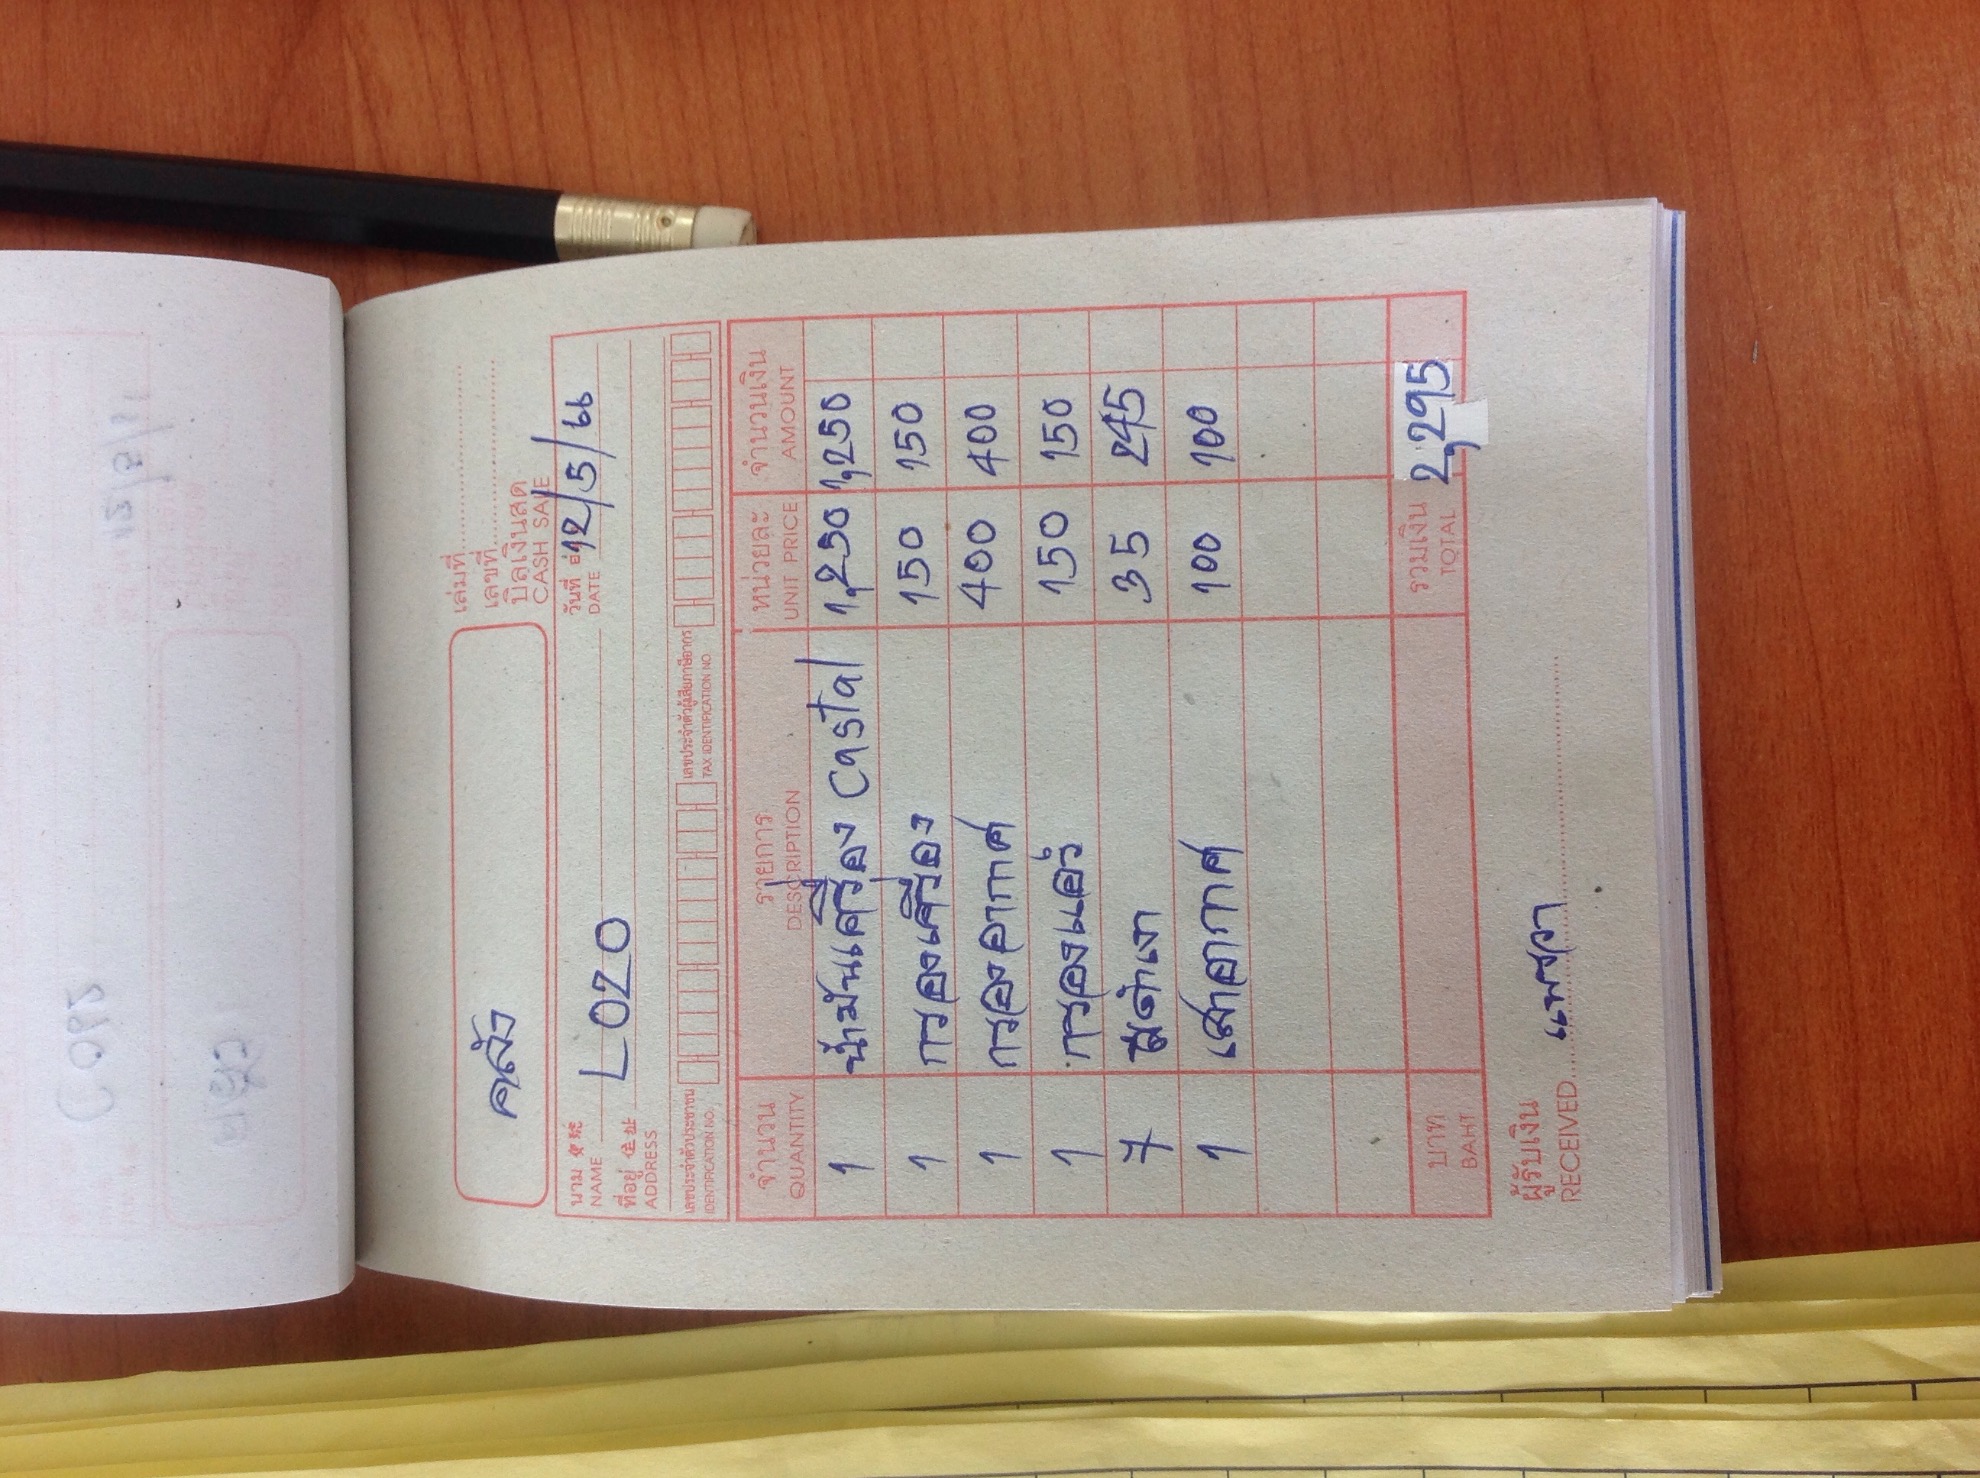 เล่มที่
เลขที่
บิลเงินสด
CASH SALE
คลัง
นาม
NAME
LOZO
วันที่ 12/5/66
DATE
ที่อยู่ 住址
ADDRESS
เลขประจำตัวประชาชน
IDENTIFICATION NO.
เลขประจำตัวผู้เสียภาษีอากร
TAX IDENTIFICATION NO.
จำนวน รายการ หน่วยละ จำนวนเงิน
QUANTITY DESCRIPTION UNIT PRICE AMOUNT
1 น้ำมันเครื่อง Castal 1,250 1,250
1 กรองเครื่อง 150 150
1 กรองอากาศ 400 400
1 กรองแอร์ 150 150
7 สีดำเงา 35 245
1 เสาอากาศ 100 100
บาท รวมเงิน 2,295
BAHT TOTAL
ผู้รับเงิน
RECEIVED